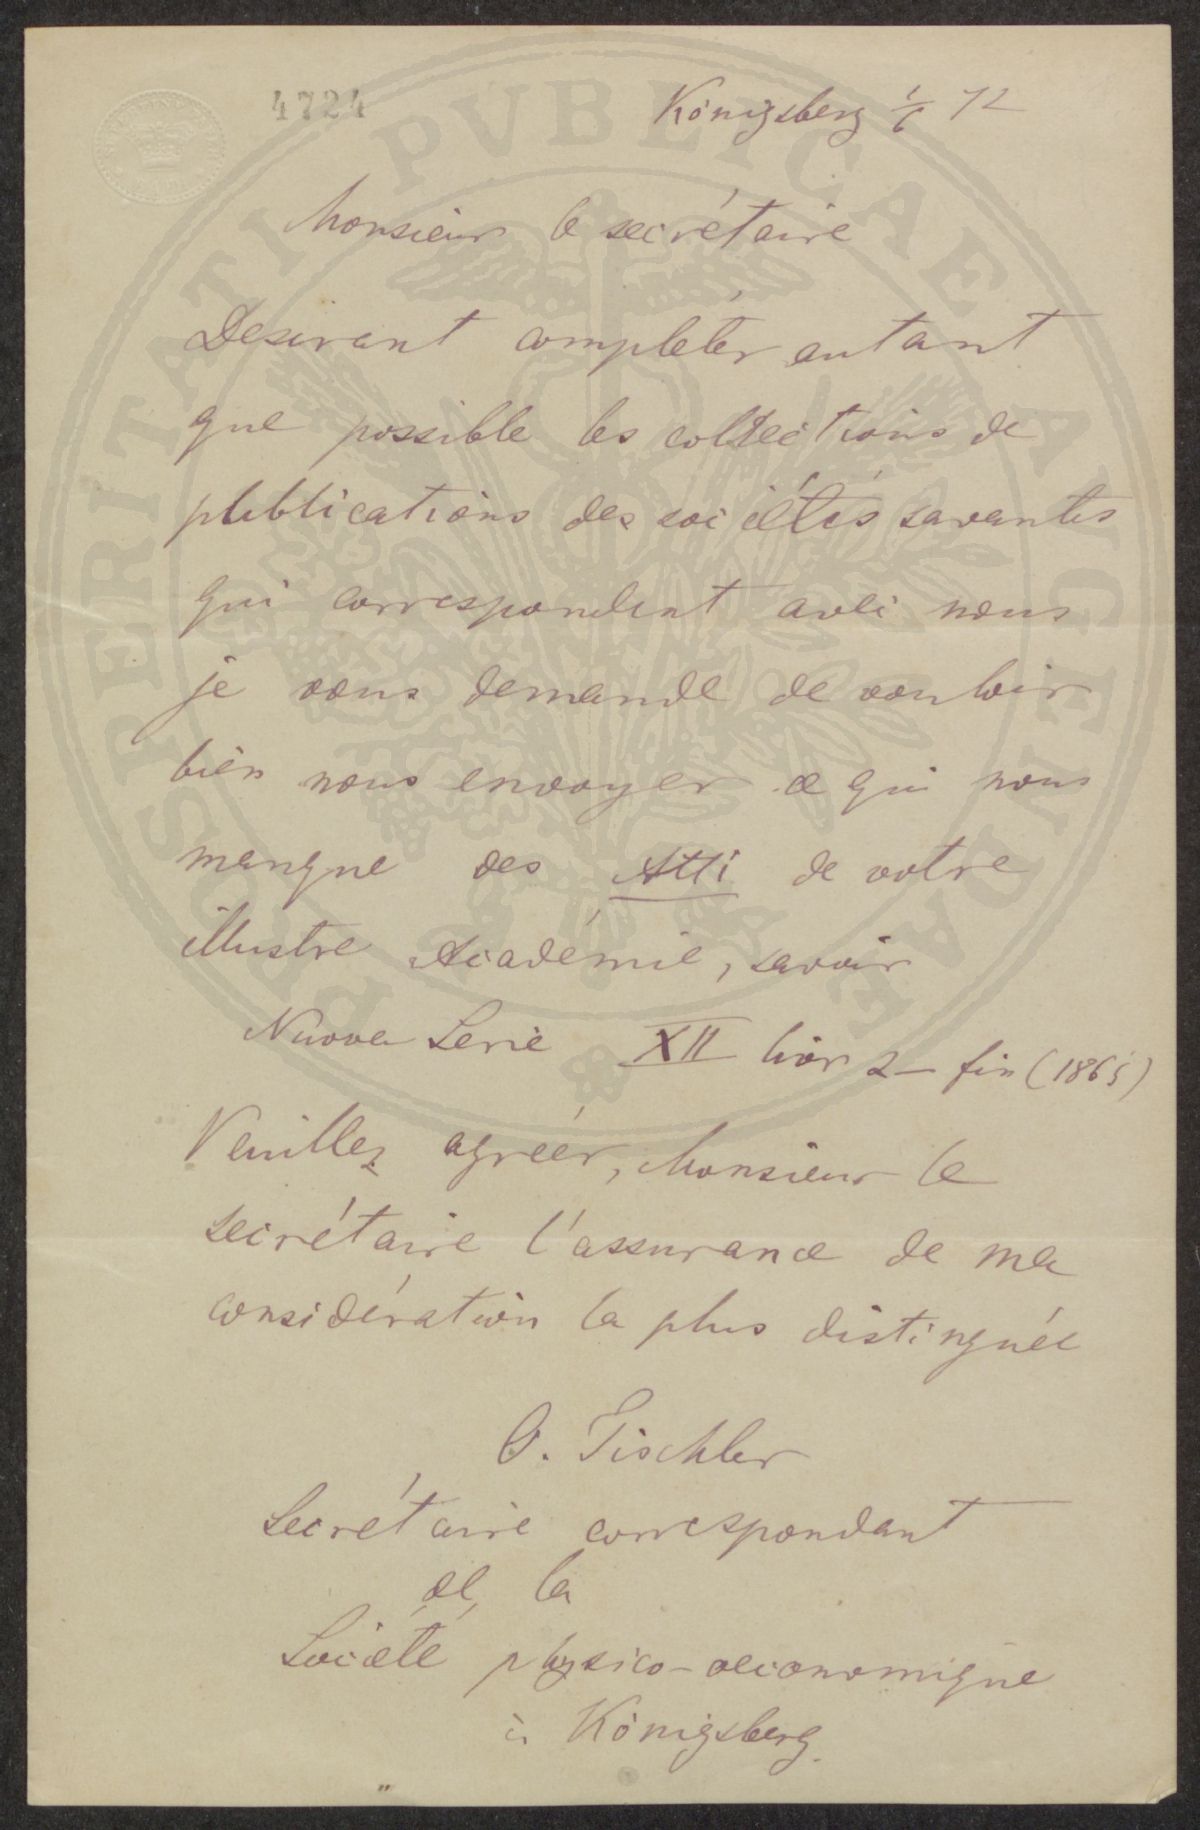 4724
Königsberg 1/6 72
Monsieur le secrétaire
Desirant complétér autant
que possible les collections de
publications des sociétés savantes
qui correspondent avec nous
je vous demande de vouloir
bien nous envoyer ce qui nous
manque des Atti de votre
illustre Académie, savoir
Nuova Serie XII livr 2 – fin (1865)
Veuillez agréér, Monsieur le
secrétaire l'assurance de ma
considération la plus distinguée
O. Tischler
Secrétaire correspondant
de la
Société physico-oeconomique
à Königsberg.
PROSPERITATI PVBLICAE AVGENDAE